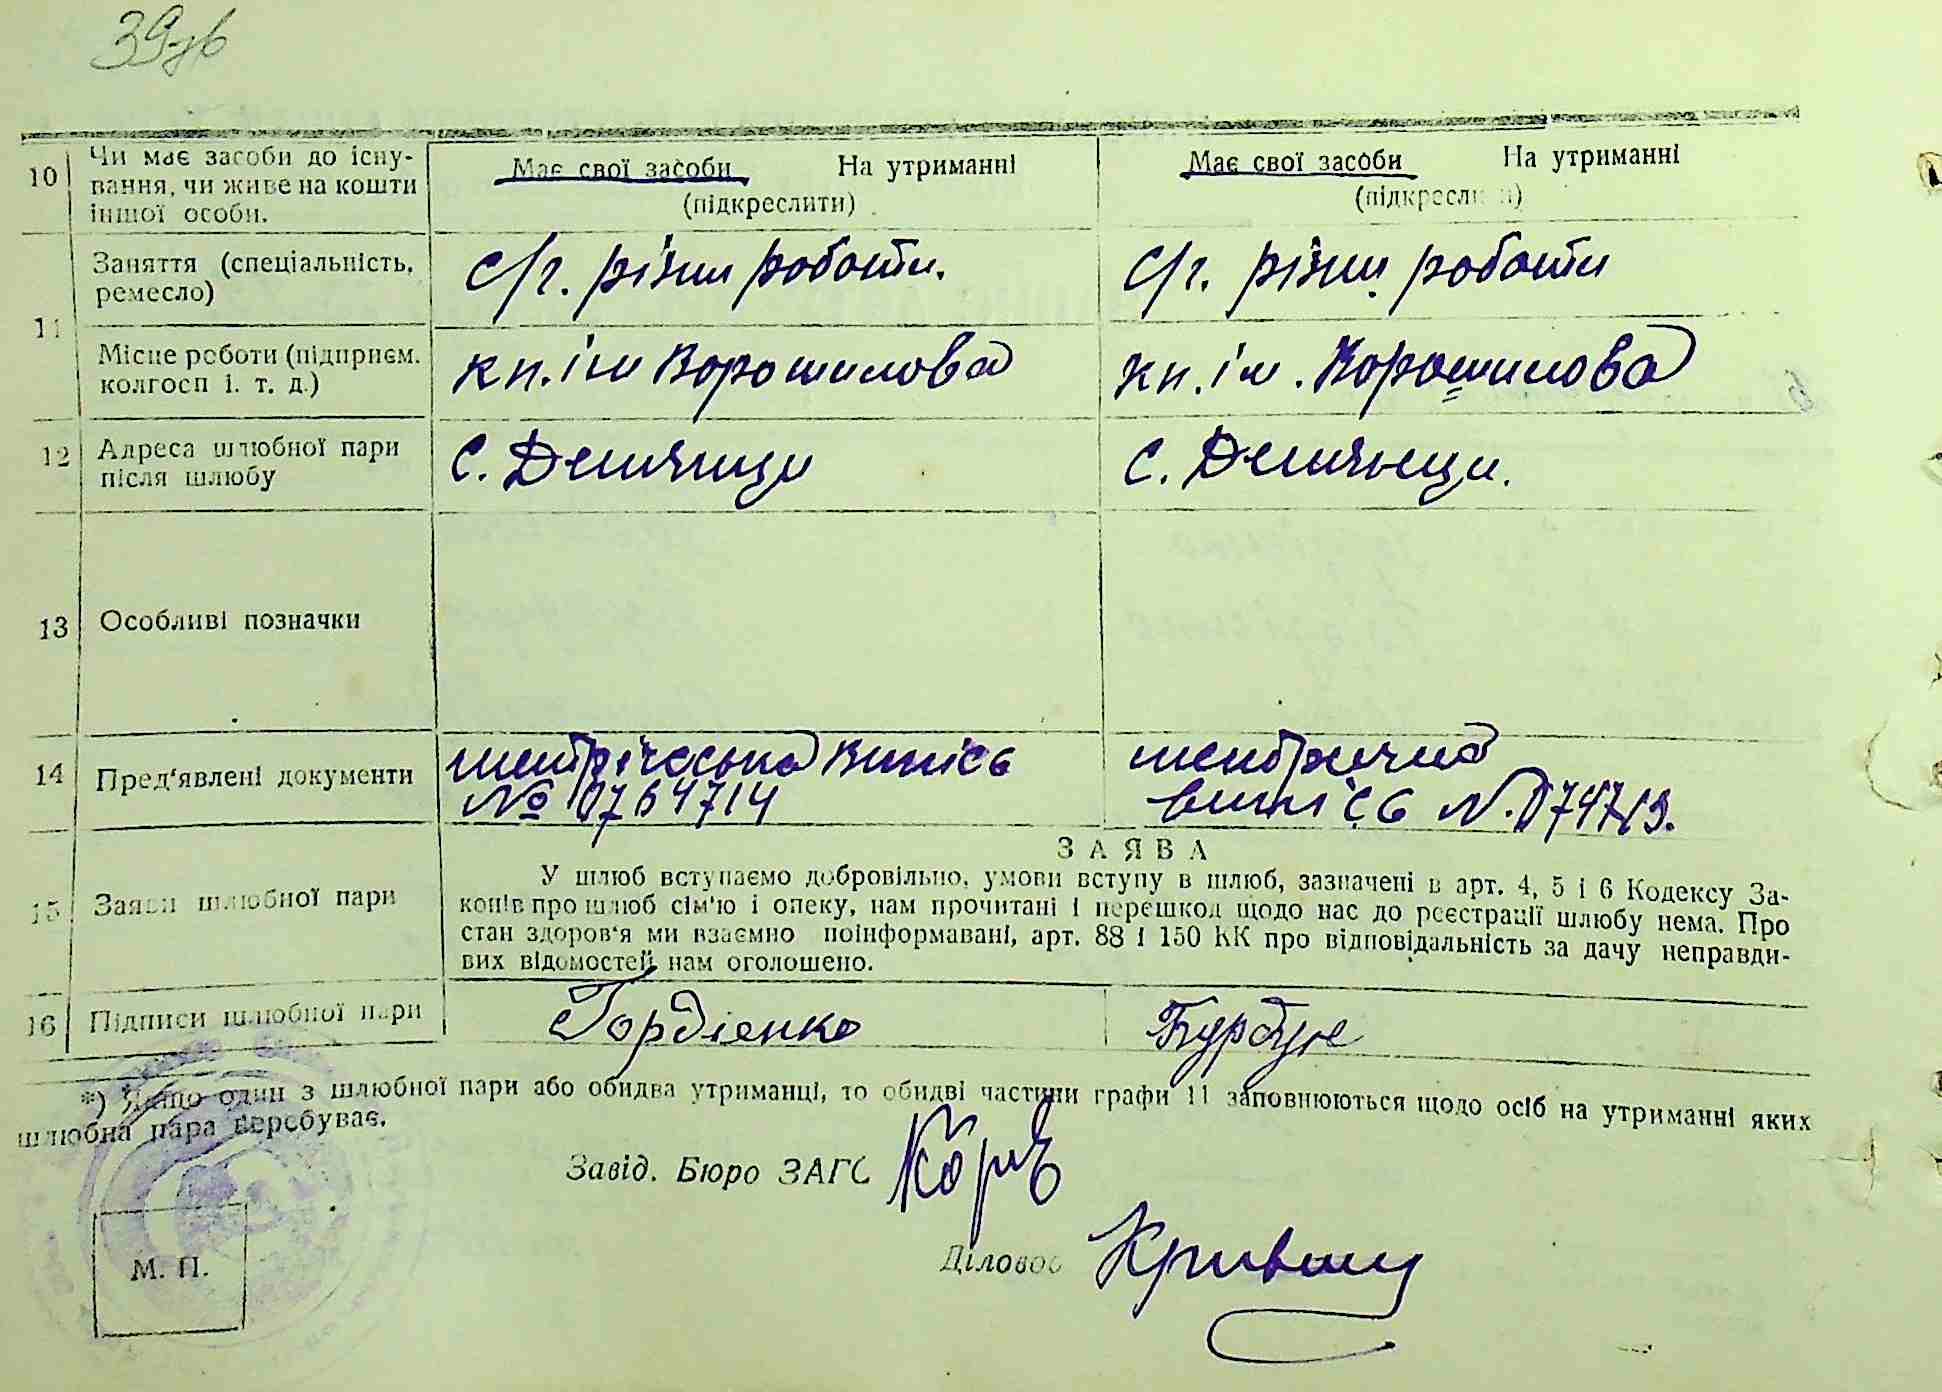 39зв
10 Чи має засоби до існу-
вання, чи живе на кошти
іншої особи.
Має свої засоби На утриманні
(підкреслити)
Має свої засоби На утриманні
(підкреслити)
11
Заняття (спеціальність,
ремесло)
с/г. різни роботи.
с/г. різни роботи
Місце роботи (підприєм.
колгосп і. т. д.)
кп. ім Ворошилова
кп. ім. Ворошилова
12 Адреса шлюбної пари
після шлюбу
с.
с.
13 Особливі позначки
14 Пред'явлені документи
метрічеська випісь
№
метрична
випісь N.
15 Заяви шлюбної пари
ЗАЯВА
У шлюб вступаємо добровільно, умови вступу в шлюб, зазначені в арт. 4, 5 і 6 Кодексу За-
конів про шлюб сім'ю і опеку, нам прочитані і перешкод щодо нас до реєстрації шлюбу нема. Про
стан здоров'я ми взаємно поінформавані, арт. 88 і 150 КК про відповідальність за дачу неправди-
вих відомостей нам оголошено.
16 Підписи шлюбної пари
Гордієнко
*) Якщо один з шлюбної пари або обидва утриманці, то обидві частини графи 11 заповнюються щодо осіб на утриманні яких
шлюбна пара перебуває.
Завід. Бюро ЗАГС
Діловос
М. П.